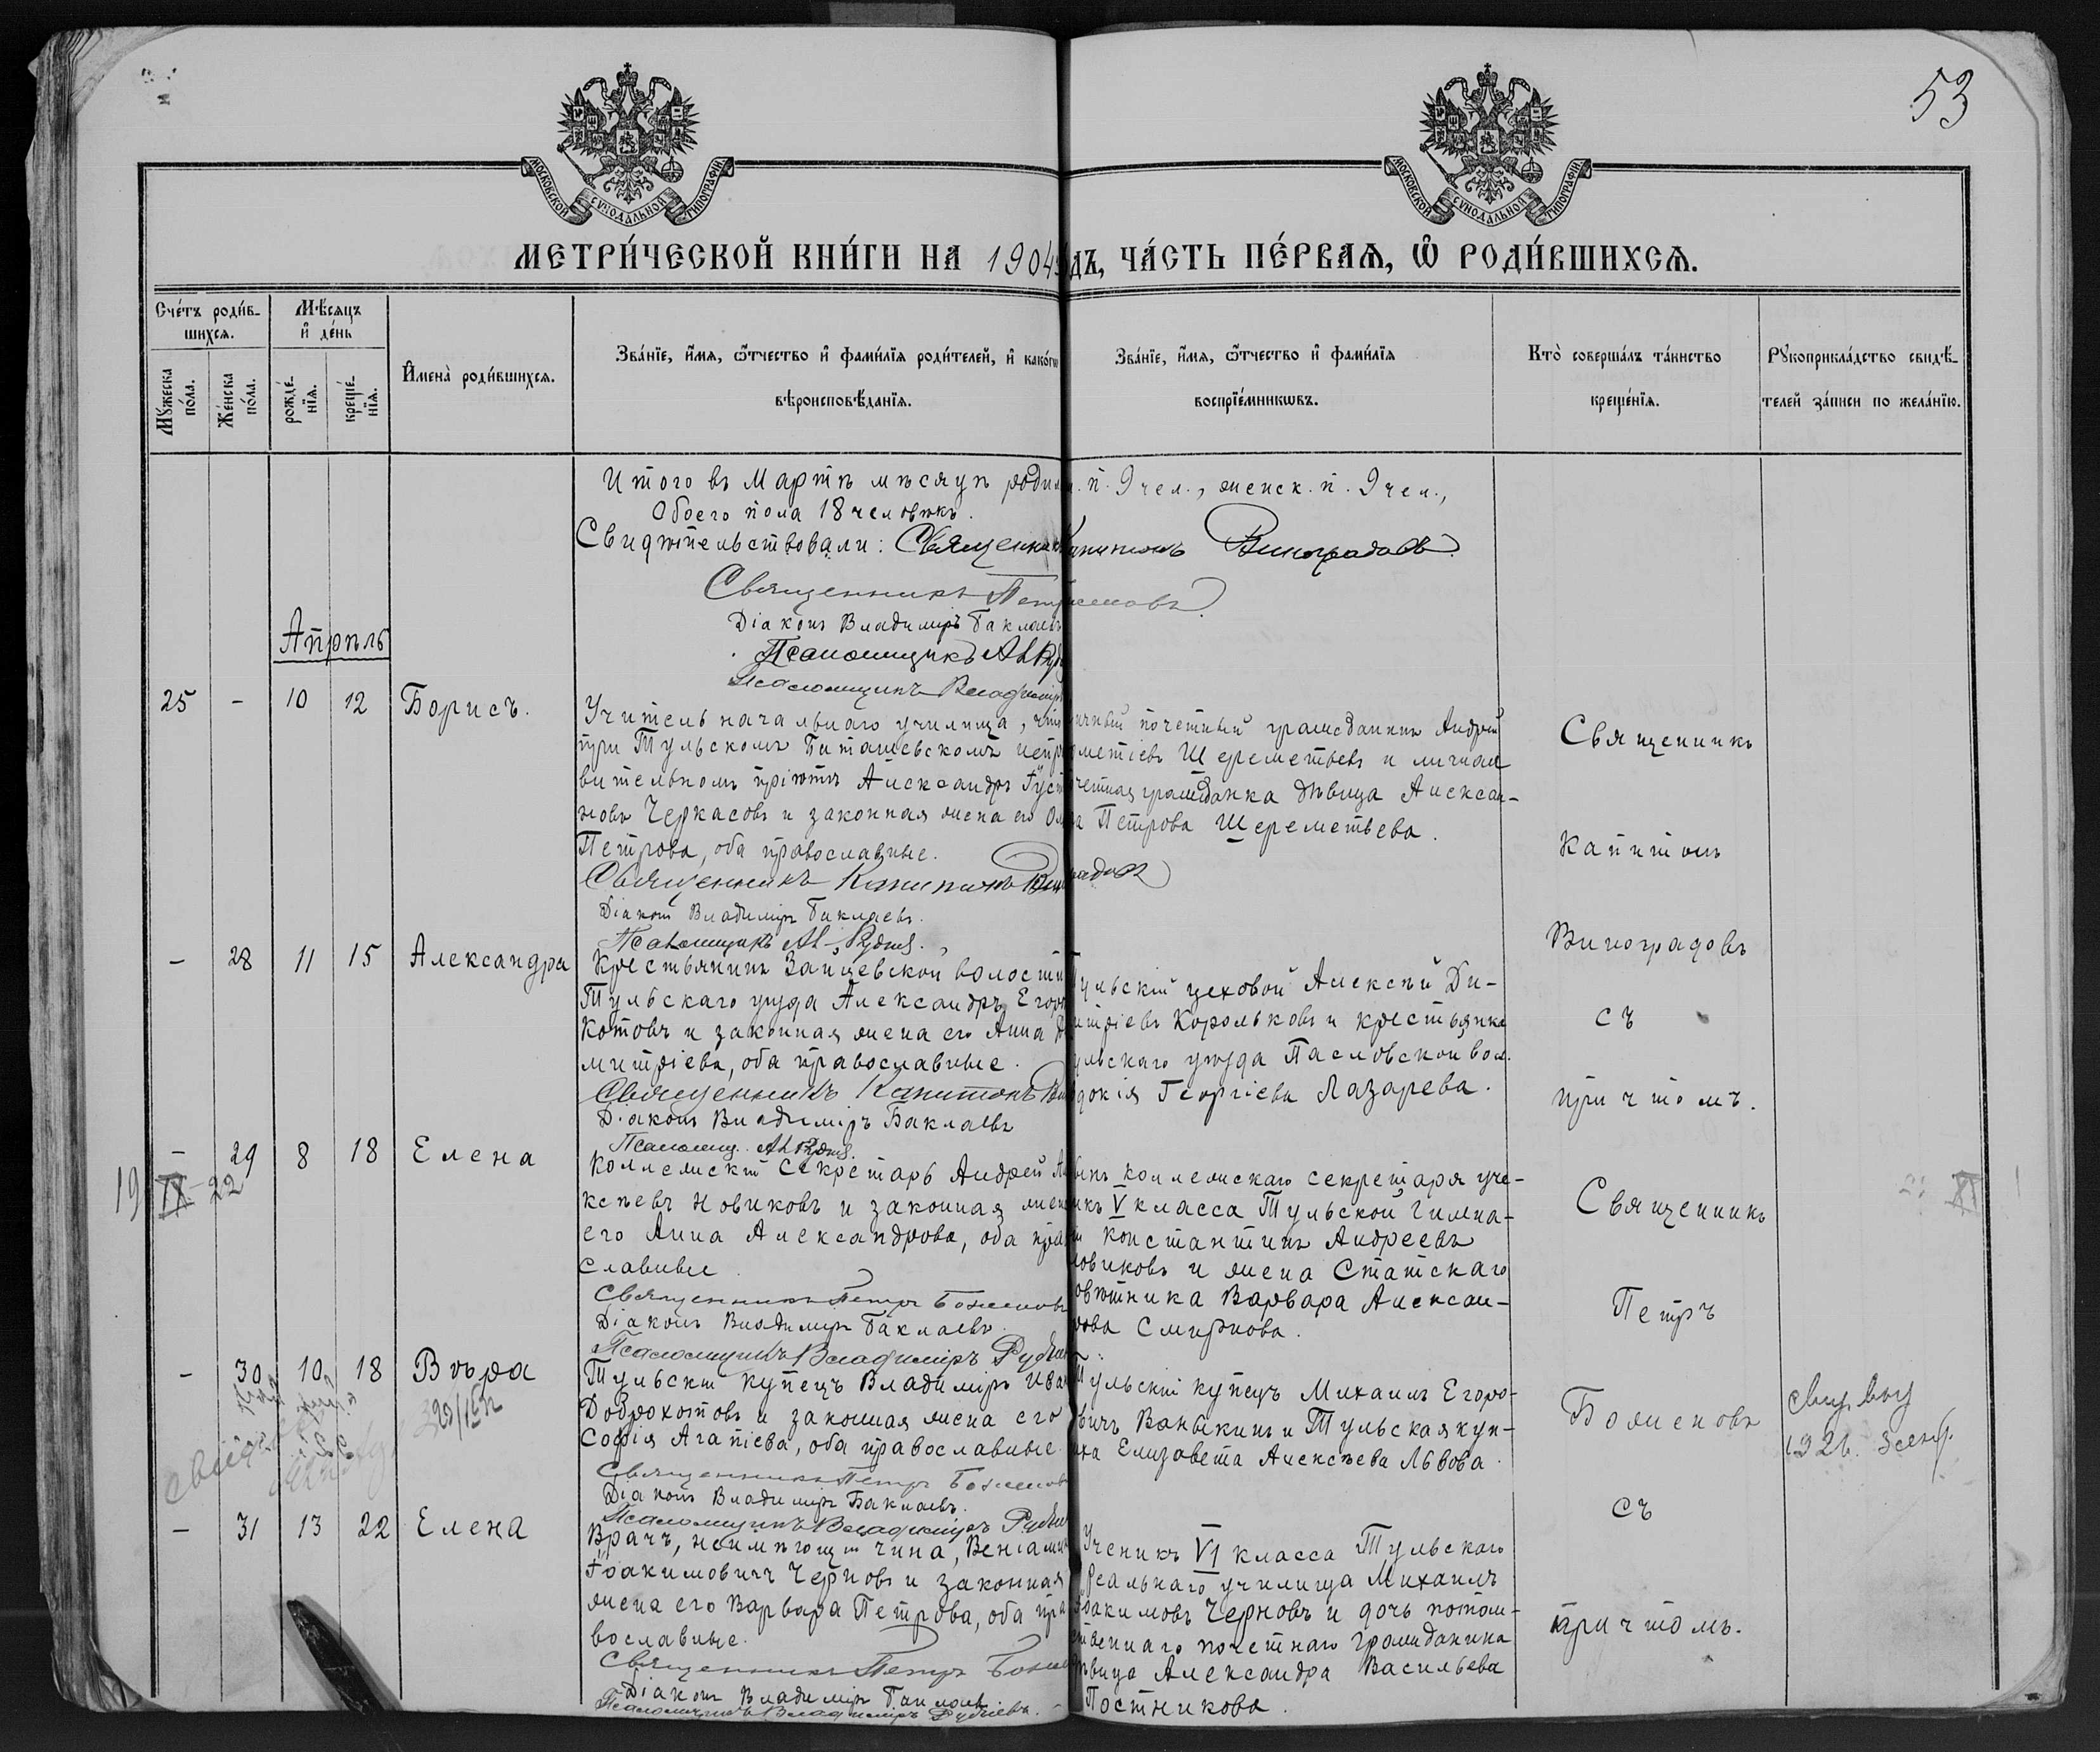 53
МОСКОВСКОЙ СѴНОДАЛЬНОЙ ТИПОГРАФІИ
МОСКОВСКОЙ СѴНОДАЛЬНОЙ ТИПОГРАФІИ
МЕТРИ́ЧЕСКОЙ КНИ́ГИ НА 1904 ДЪ, ЧА́СТЬ ПЕ́РВАѦ, Ѽ РОДИ́ВШИХСѦ.
Сче́тъ роди́в-
шихсѧ.
Мѣ́сѧцъ
и҆ де́нь
Мꙋ́жеска
по́ла.
Же́нска
по́ла.
рожде́-
нїѧ.
креще́-
нїѧ.
И҆мена̀ роди́вшихсѧ.
Зва́нїе, и҆́мѧ, ѻ҆́тчество и҆ фамн́лїѧ роди́телей, и҆ како́гѡ
вѣроисповѣ́данїѧ.
Зва́нїе, и҆́мѧ, ѻ҆́тчество и҆ фами́лїѧ
воспрїе́мникѡвъ.
Кто̀ соверша́лъ та́инство
креще́нїѧ.
Рꙋкоприкла́дство свидѣ́-
телей за́писи по жела́нїю.
Итого въ Мартѣ мѣсяцѣ родил. п. 9 чел., женск. п. 9 чел.,
Обоего пола 18 человѣкъ.
Свидѣтельствовали: Священникъ Капитонъ Виноградовъ
Священникъ Петръ
Діаконъ Владиміръ Баклаевъ
Псаломщикъ Ал. Руд
Псаломщикъ Владиміръ
Апрѣль
25 - 10 12 Борисъ.
Учитель начальнаго училища,
при Тульскомъ Баташевскомъ
вительномъ пріютѣ Александръ Густ
новъ Черкасовъ и законная жена его Ол
Петрова, оба православные.
Священникъ Капитонъ Виноградовъ
Діаконъ Владиміръ Баклаевъ.
Псаломщикъ Ал. Рудневъ.
ичный почетный гражданинъ Андрей
метіевъ Шереметьевъ и личная
четная гражданка дѣвица Алексан-
а Петрова Шереметьева.
Священникъ
Капитонъ
Виноградовъ
съ
причтомъ.
- 28 11 15 Александра
Крестьянинъ Зайцевской волости
Тульскаго уѣзда Александръ Егоро
Котовъ и законная жена его Анна Д
митріева, оба православные.
Священникъ Капитонъ Ви
Діаконъ Владиміръ Баклаевъ
Псаломщ. Ал. Рудневъ.
Тульскій цеховой Алексѣй Ди-
итріевъ Корольковъ и крестьянка
ульскаго уѣзда Пасловской вол.
докія Георгіева Лазарева.
- 29 8 18 Елена
19 IX 22
Коллежскій Секретарь Андрей Ал
ксѣевъ Новиковъ и законная жен
его Анна Александрова, оба прав
славные
Священникъ Петръ Боженовъ
Діаконъ Владиміръ Баклаевъ.
Псаломщикъ Владиміръ Рудневъ
ынъ коллежскаго секретаря уче-
икъ V класса Тульской гимна-
и Константинъ Андреевъ
овиковъ и жена Статскаго
овѣтника Варвара Алексан-
рова Смирнова.
Священникъ
Петръ
Боженовъ
съ
причтомъ.
- 30 10 18 Вѣра
Тульскій купецъ Владиміръ Ива
Доброхотовъ и законная жена его
Софія Агапіева, оба православные.
Священникъ Петръ Боженовъ
Діаконъ Владиміръ Баклаевъ.
Псаломщикъ Владиміръ Рудневъ
Тульскій купецъ Михаилъ Егоро-
вичъ Ваныкинъ и Тульская куп-
иха Елизавета Алексѣева Львова.
- 31 13 22 Елена
Врачъ, неимѣющій чина, Веніами
Іоакимовичъ Черновъ и законная
жена его Варвара Петрова, оба пра
вославные.
Священникъ Петръ Божен
Діаконъ Владиміръ Баклаевъ
Псаломщикъ Владиміръ Рудневъ.
Ученикъ VI класса Тульскаго
реальнаго училища Михаилъ
Іоакимовъ Черновъ и дочь потом-
ственнаго почетнаго гражданина
дѣвица Александра Васильева
Постникова.